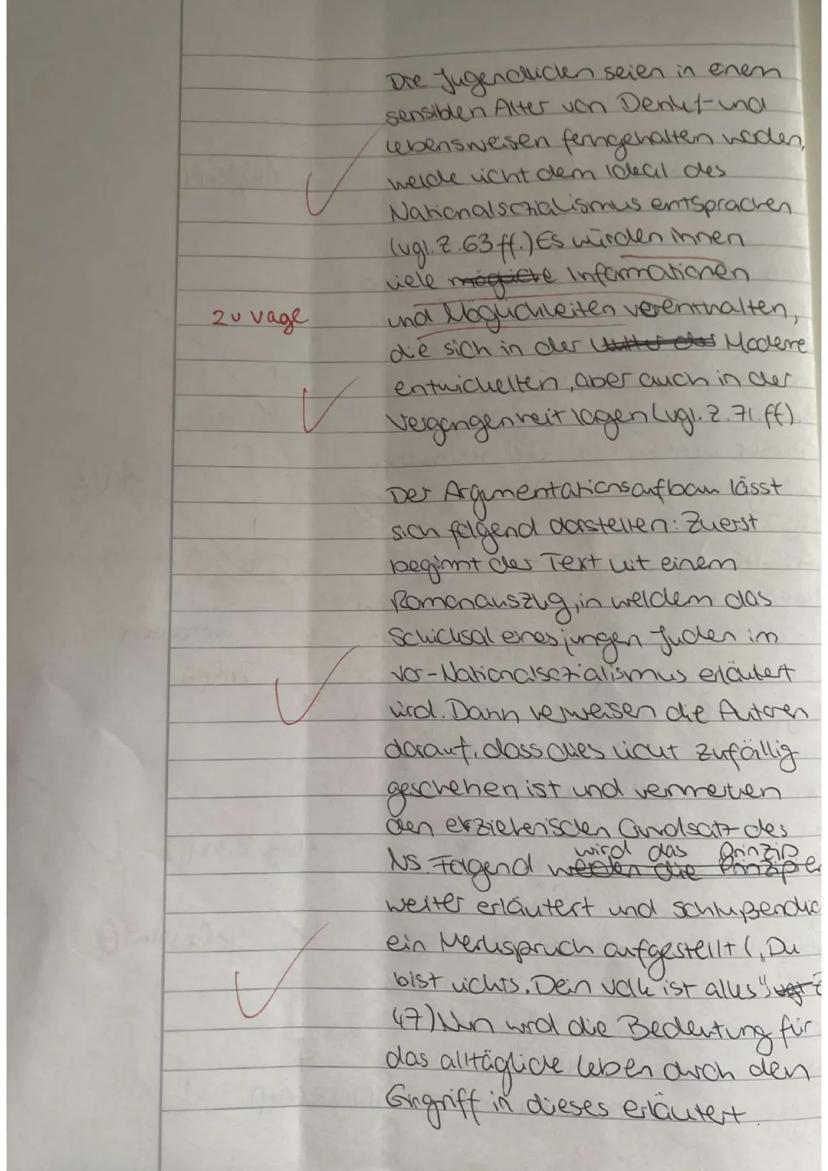 Die Jugendlichen seien in einem
sensiblen Alter von Denk- und
Lebensweisen ferngehalten worden,
welche nicht dem Ideal des
Nationalsozialismus entsprachen
(vgl. Z. 63 ff.) Es würden ihnen
viele mögliche Informationen
zu vage
und Möglichkeiten vorenthalten,
die sich in der Moderne
entwickelten, aber auch in der
Vergangenheit lagen (vgl. Z. 71 ff)
Der Argumentationsaufbau lässt
sich folgend darstellen: Zuerst
beginnt der Text mit einem
Romanauszug, in welchem das
Schicksal eines jungen Juden im
vor-Nationalsozialismus erläutert
wird. Dann verweisen die Autoren
darauf, dass dies nicht zufällig
geschehen ist und vermerken
den erzieherischen Grundsatz des
wird das Prinzip
NS. Folgend werden die Prinzipie
weiter erläutert und schlußendlic
ein Merkspruch aufgestellt („Du
bist nichts. Dein Volk ist alles" vgl. Z
47) Nun wird die Bedeutung für
das alltägliche Leben durch den
Eingriff in dieses erläutert.